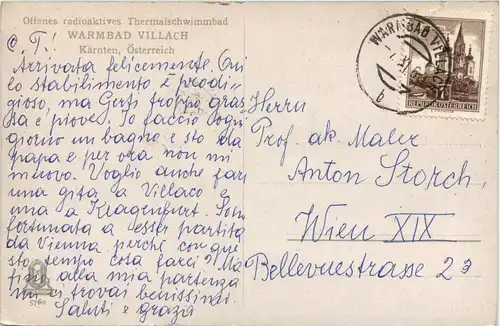 Offenes radioaktives Thermalschwimmbad
WARMBAD VILLACH
Kärnten, Österreich
C. T!
Arrivata felicemente. Qui
lo stabilimento è prodi-
gioso, ma Gerti troppo gras
sa e piove! Io faccio ogni
giorno un bagno e sto da
papa e per ora non mi
muovo. Voglio anche far
una gita a Villaco e
una a Klagenfurt. Son
fortunata a esser partita
da Vienna perché con que
sto tempo cosa farci? Ma
fin alla mia partenza
mi ci trovai benissimo.
Saluti e grazie
5769
WARMBAD VILLACH
b
REPUBLIK ÖSTERREICH
Herrn
Prof. ak. Maler
Anton Storch,
Wien XIX
Bellevuestrasse 23